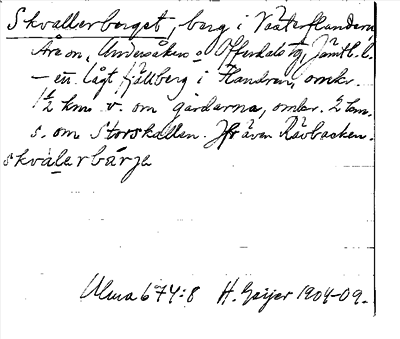 Skvallerberget, berg i Västerflandern
Åreom, Undersåkers o Offerdals tg, Jämtl. l.
– en lågt fjällberg i Flandren, omkr.
1½ km. v. om gårdarna, omkr. 2 km.
s. om Storskallen. Jfr även Rävbacken.
skvalerbärje
Ulma 674:8 H. Geijer 1904-09.